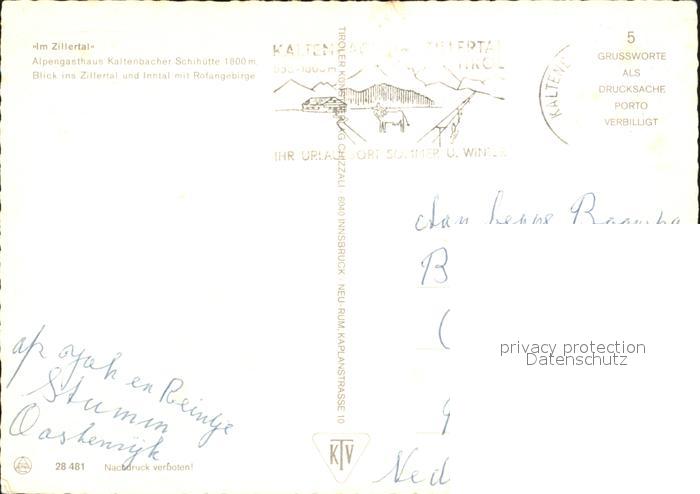 »Im Zillertal«
Alpengasthaus Kaltenbacher Schihütte 1800 m,
Blick ins Zillertal und Inntal mit Rofangebirge
ZILLERTAL
TIROL
IHR URLAUBSORT SOMMER U. WINTER
KALTENB
5
GRUSSWORTE
ALS
DRUCKSACHE
PORTO
VERBILLIGT
TIROLER KUNSTVERLAG CHIZZALI · 6040 INNSBRUCK NEU-RUM, KAPLANSTRASSE 10
B
privacy protection
Datenschutz
Ned
en Reintje
Stumm
Oostenrijk
KTV
28 481 Nachdruck verboten!